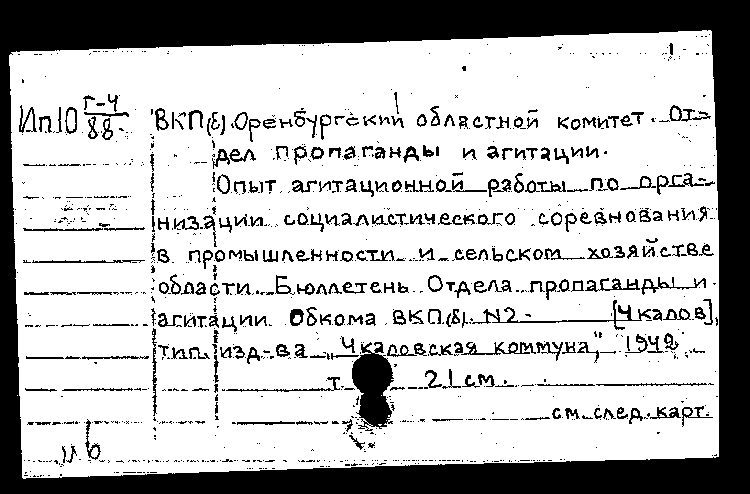 Ип10 Г-4/88. ВКП(б). Оренбургский областной комитет. От-
дел пропаганды и агитации.
Опыт агитационной работы по орга-
низации социалистического соревнования
в промышленности и сельском хозяйстве
области. Бюллетень Отдела пропаганды и
агитации Обкома ВКП(б). №2 - [Чкалов],
тип. изд-ва "Чкаловская коммуна", 1942.
т. 21 см.
см. след. карт.